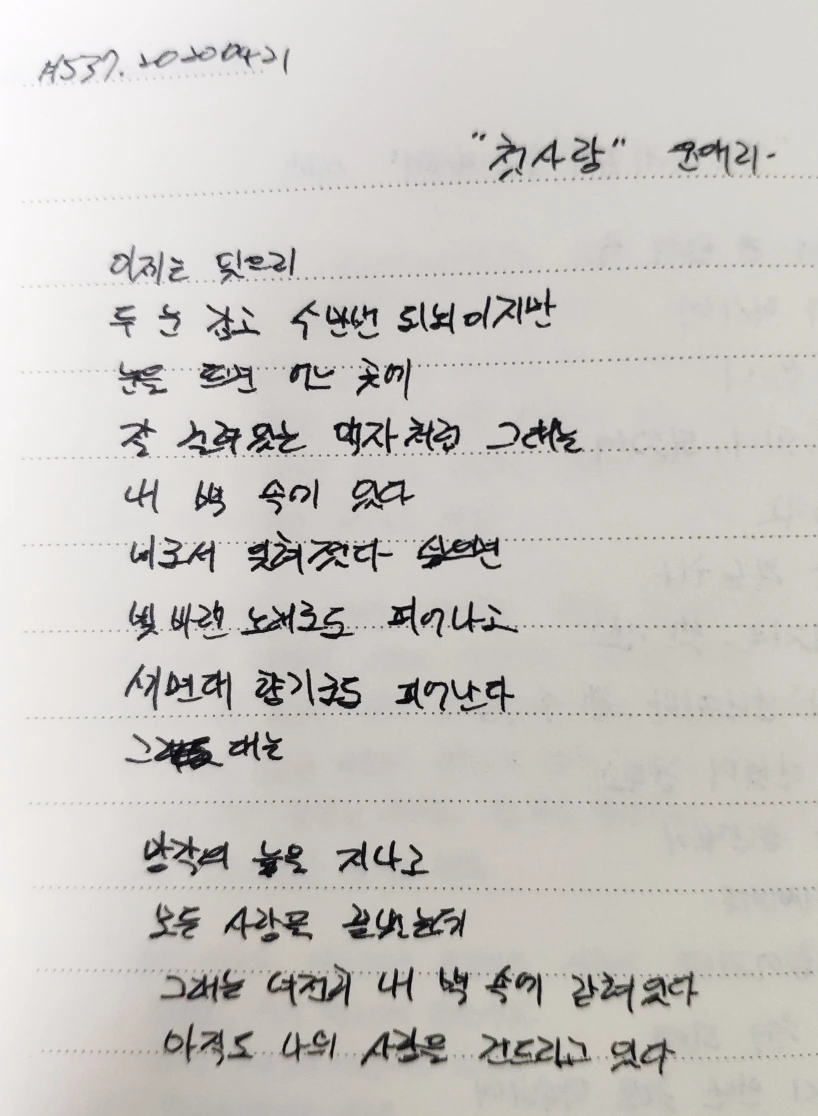 #537. 20200421
"첫사랑" 문애리-
이제는 잊으리
두 눈 감고 수만번 되뇌이지만
눈을 뜨면 어느 곳에
잘 숨겨 있는 액자처럼 그대는
내 벽 속에 있다
비로서 잊혀졌다 싶으면
빛 바랜 노래로도 피어나고
새면대 향기로도 피어난다
그대는
망각의 늪을 지나고
모든 사랑을 끝냈는데
그대는 여전히 내 벽 속에 갇혀있다
아직도 나의 사랑을 건드리고 있다